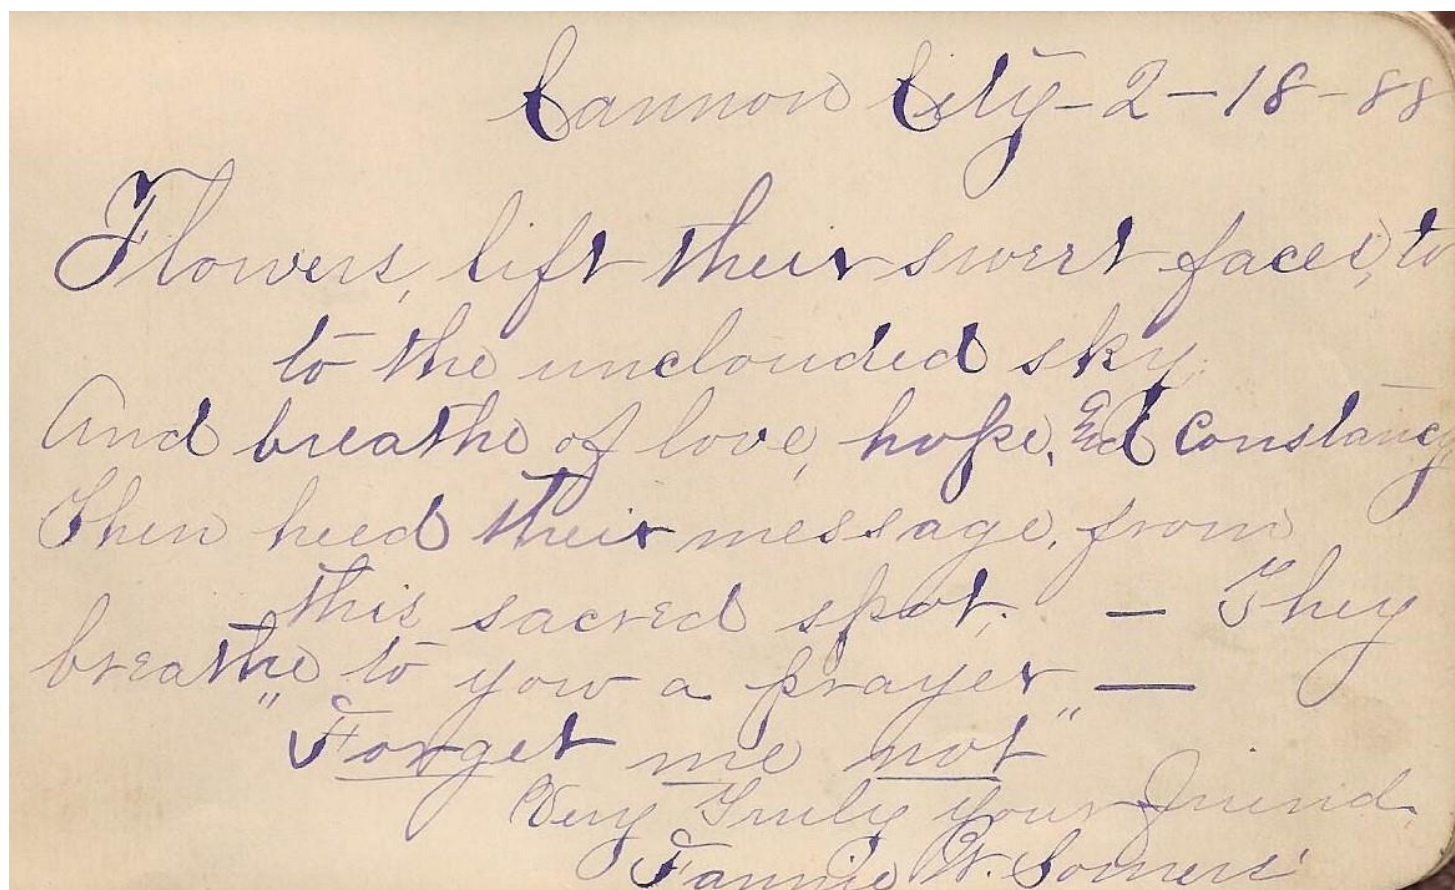 Cannon City - 2 - 18 - 88
Flowers, lift their sweet faces, to
to the unclouded sky,
And breathe of love, hope, & constancy,
Then heed their message, from
this sacred spot, — They
breathe to you a prayer —
"Forget me not"
Very Truly your friend,
Fannie W. Somers